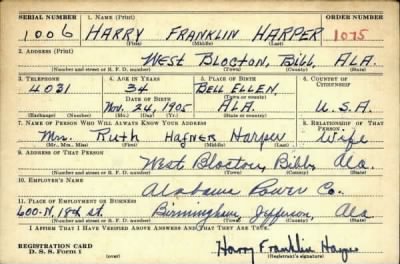 SERIAL NUMBER 1. NAME (Print) ORDER NUMBER
1006 HARRY FRANKLIN HARPER 1075
(First) (Middle) (Last)
2. ADDRESS (Print)
WEST BLOCTON, BIBB, ALA.
(Number and street or R. F. D. number) (Town) (County) (State)
3. TELEPHONE 4. AGE IN YEARS 5. PLACE OF BIRTH 6. COUNTRY OF CITIZENSHIP
4031 34 BELL ELLEN,
DATE OF BIRTH (Town or county)
Nov. 24, 1905 ALA. U.S.A.
(Exchange) (Number) (Mo.) (Day) (Yr.) (State or country)
7. NAME OF PERSON WHO WILL ALWAYS KNOW YOUR ADDRESS 8. RELATIONSHIP OF THAT PERSON
Mrs. Ruth Hafner Harper Wife
(Mr., Mrs., Miss) (First) (Middle) (Last)
9. ADDRESS OF THAT PERSON
West Blocton, Bibb, Ala.
(Number and street or R. F. D. number) (Town) (County) (State)
10. EMPLOYER'S NAME
Alabama Power Co.
11. PLACE OF EMPLOYMENT OR BUSINESS
600-N. 18th st. Birmingham, Jefferson, Ala
(Number and street or R. F. D. number) (Town) (County) (State)
I AFFIRM THAT I HAVE VERIFIED ABOVE ANSWERS AND THAT THEY ARE TRUE.
REGISTRATION CARD
D. S. S. Form 1 (over) Harry Franklin Harper
(Registrant's signature)